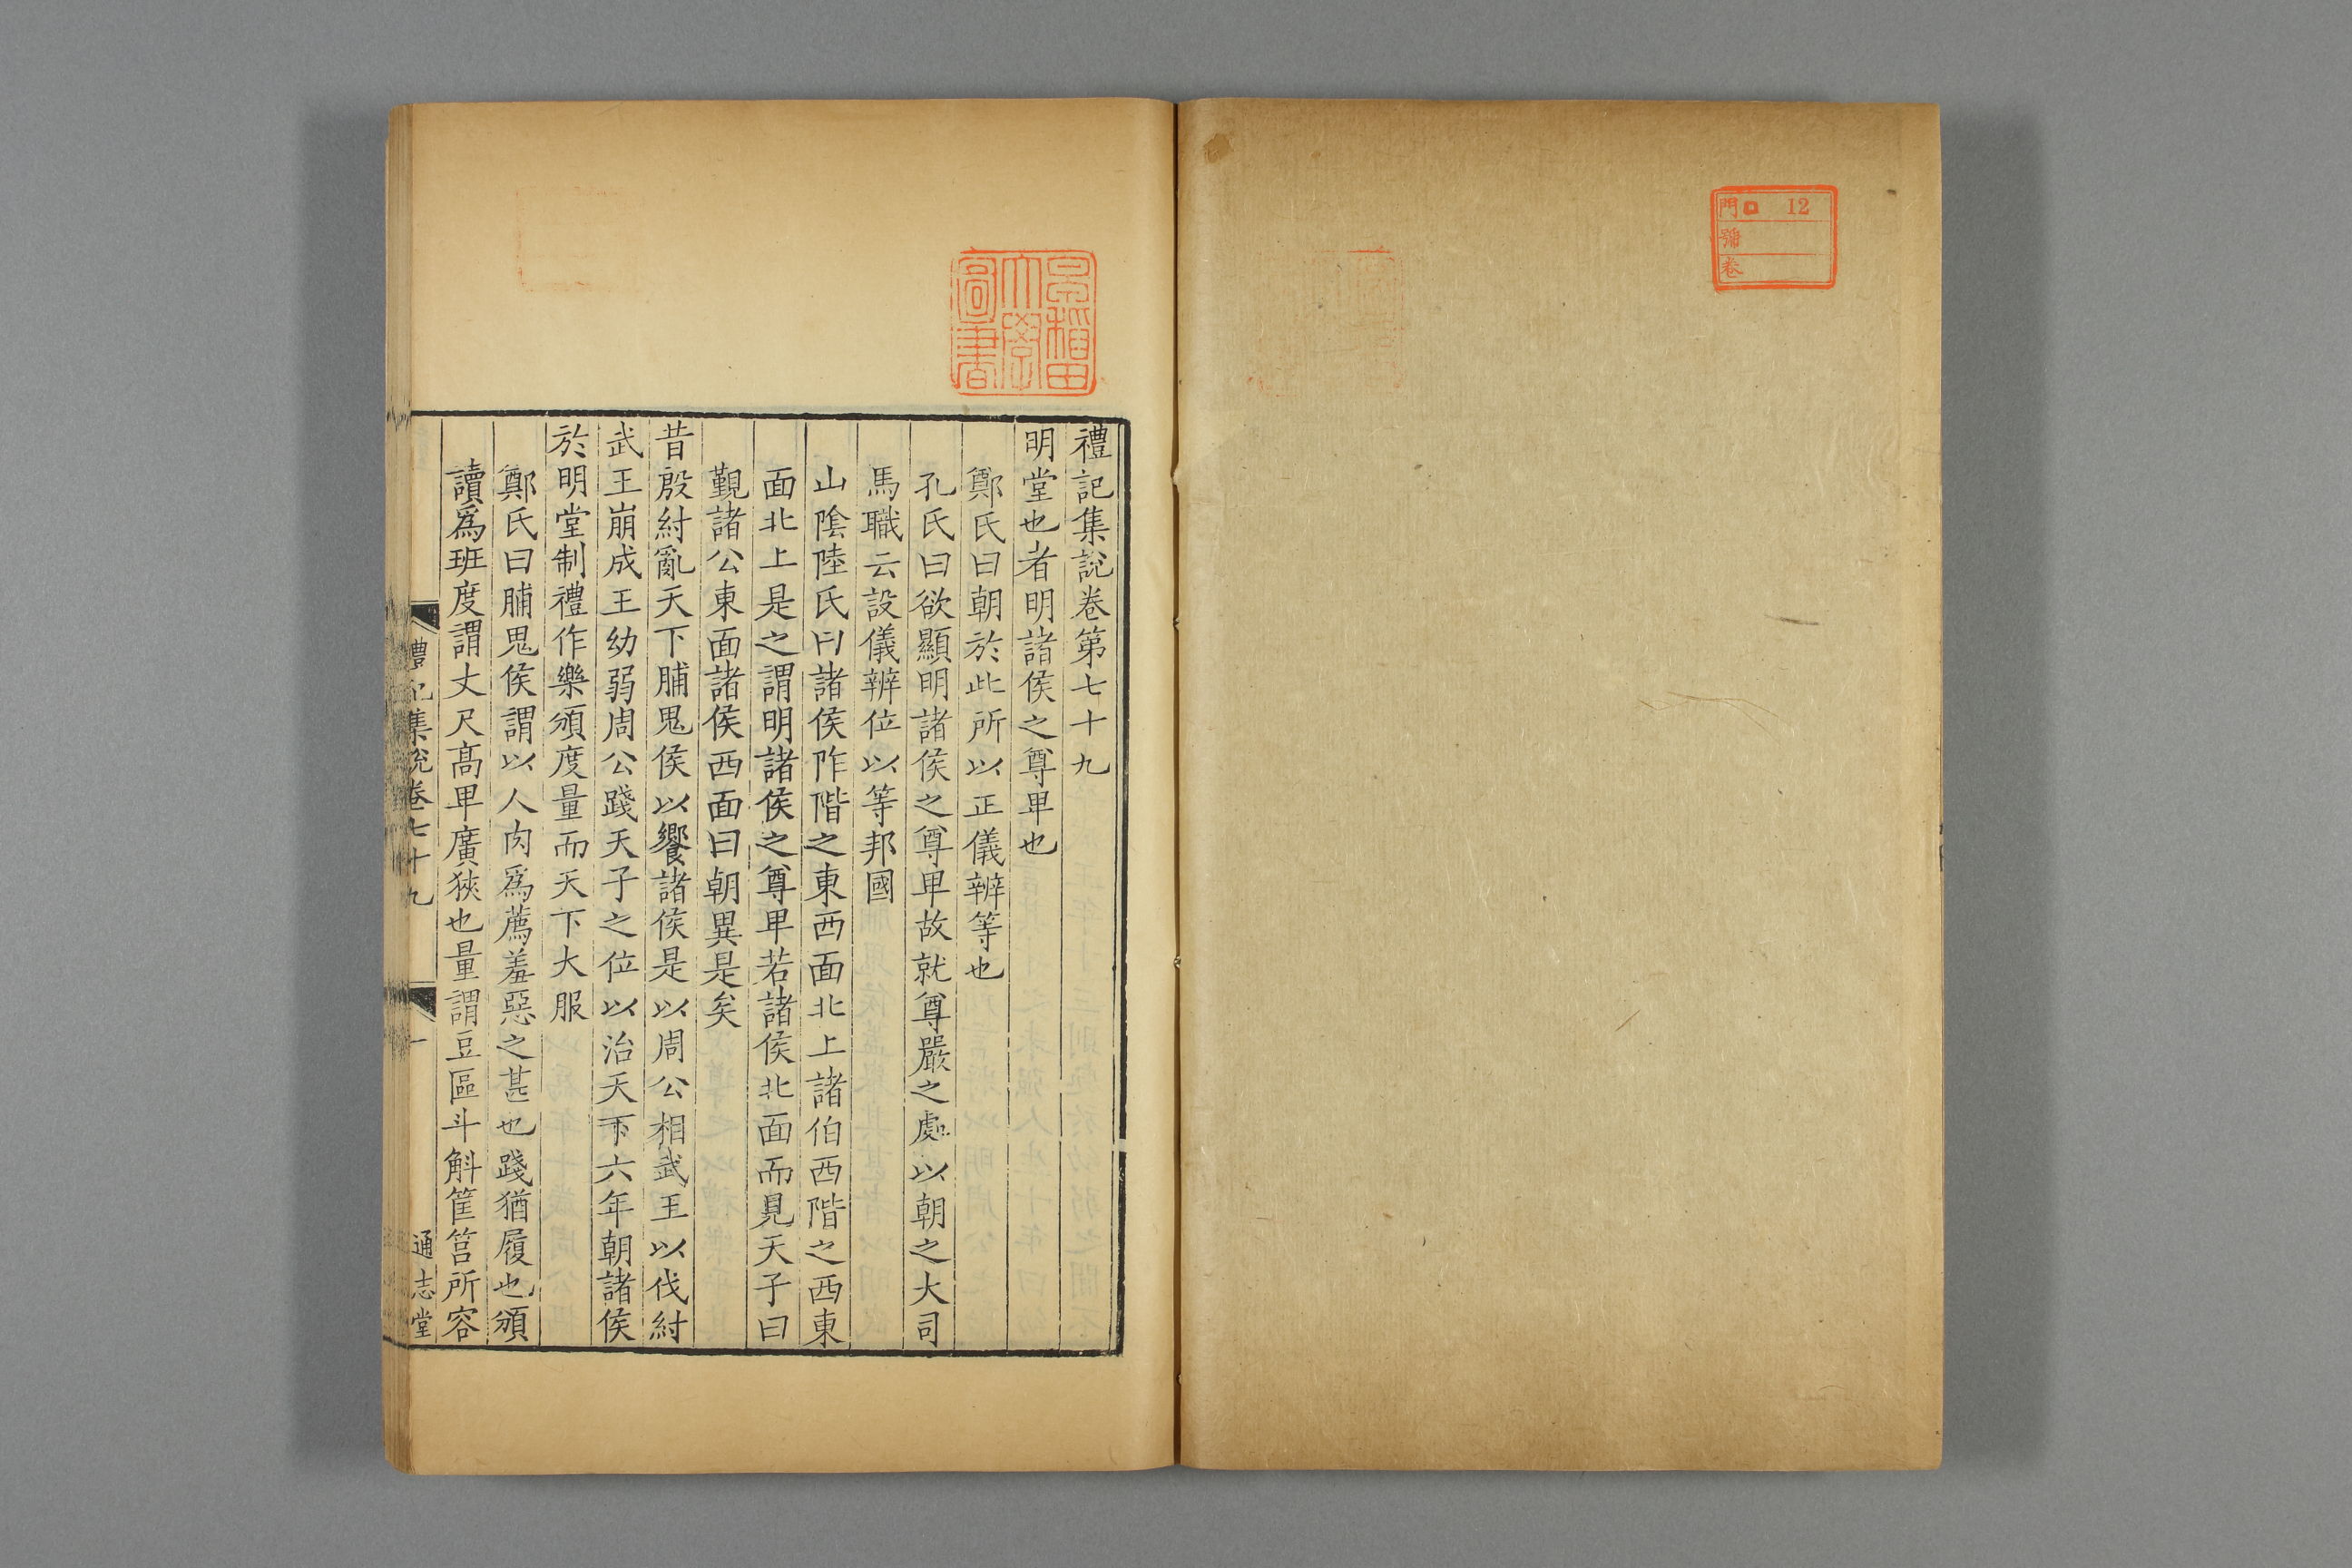 門口 12
號
卷
早稻田
大學
圖書
禮記集說卷第七十九
明堂也者明諸侯之尊卑也
鄭氏曰朝於此所以正儀辨等也
孔氏曰欲顯明諸侯之尊卑故就尊嚴之處以朝之大司
馬職云設儀辨位以等邦國
山陰陸氏曰諸侯阼階之東西面北上諸伯西階之西東
面北上是之謂明諸侯之尊卑若諸侯北面而見天子曰
覲諸公東面諸侯西面曰朝異是矣
昔殷紂亂天下脯鬼侯以饗諸侯是以周公相武王以伐紂
武王崩成王幼弱周公踐天子之位以治天下六年朝諸侯
於明堂制禮作樂頒度量而天下大服
鄭氏曰脯鬼侯謂以人肉爲薦羞惡之甚也踐猶履也頒
讀爲班度謂丈尺髙卑廣狹也量謂豆區斗斛筐筥所容
禮記集說卷七十九 一 通志堂